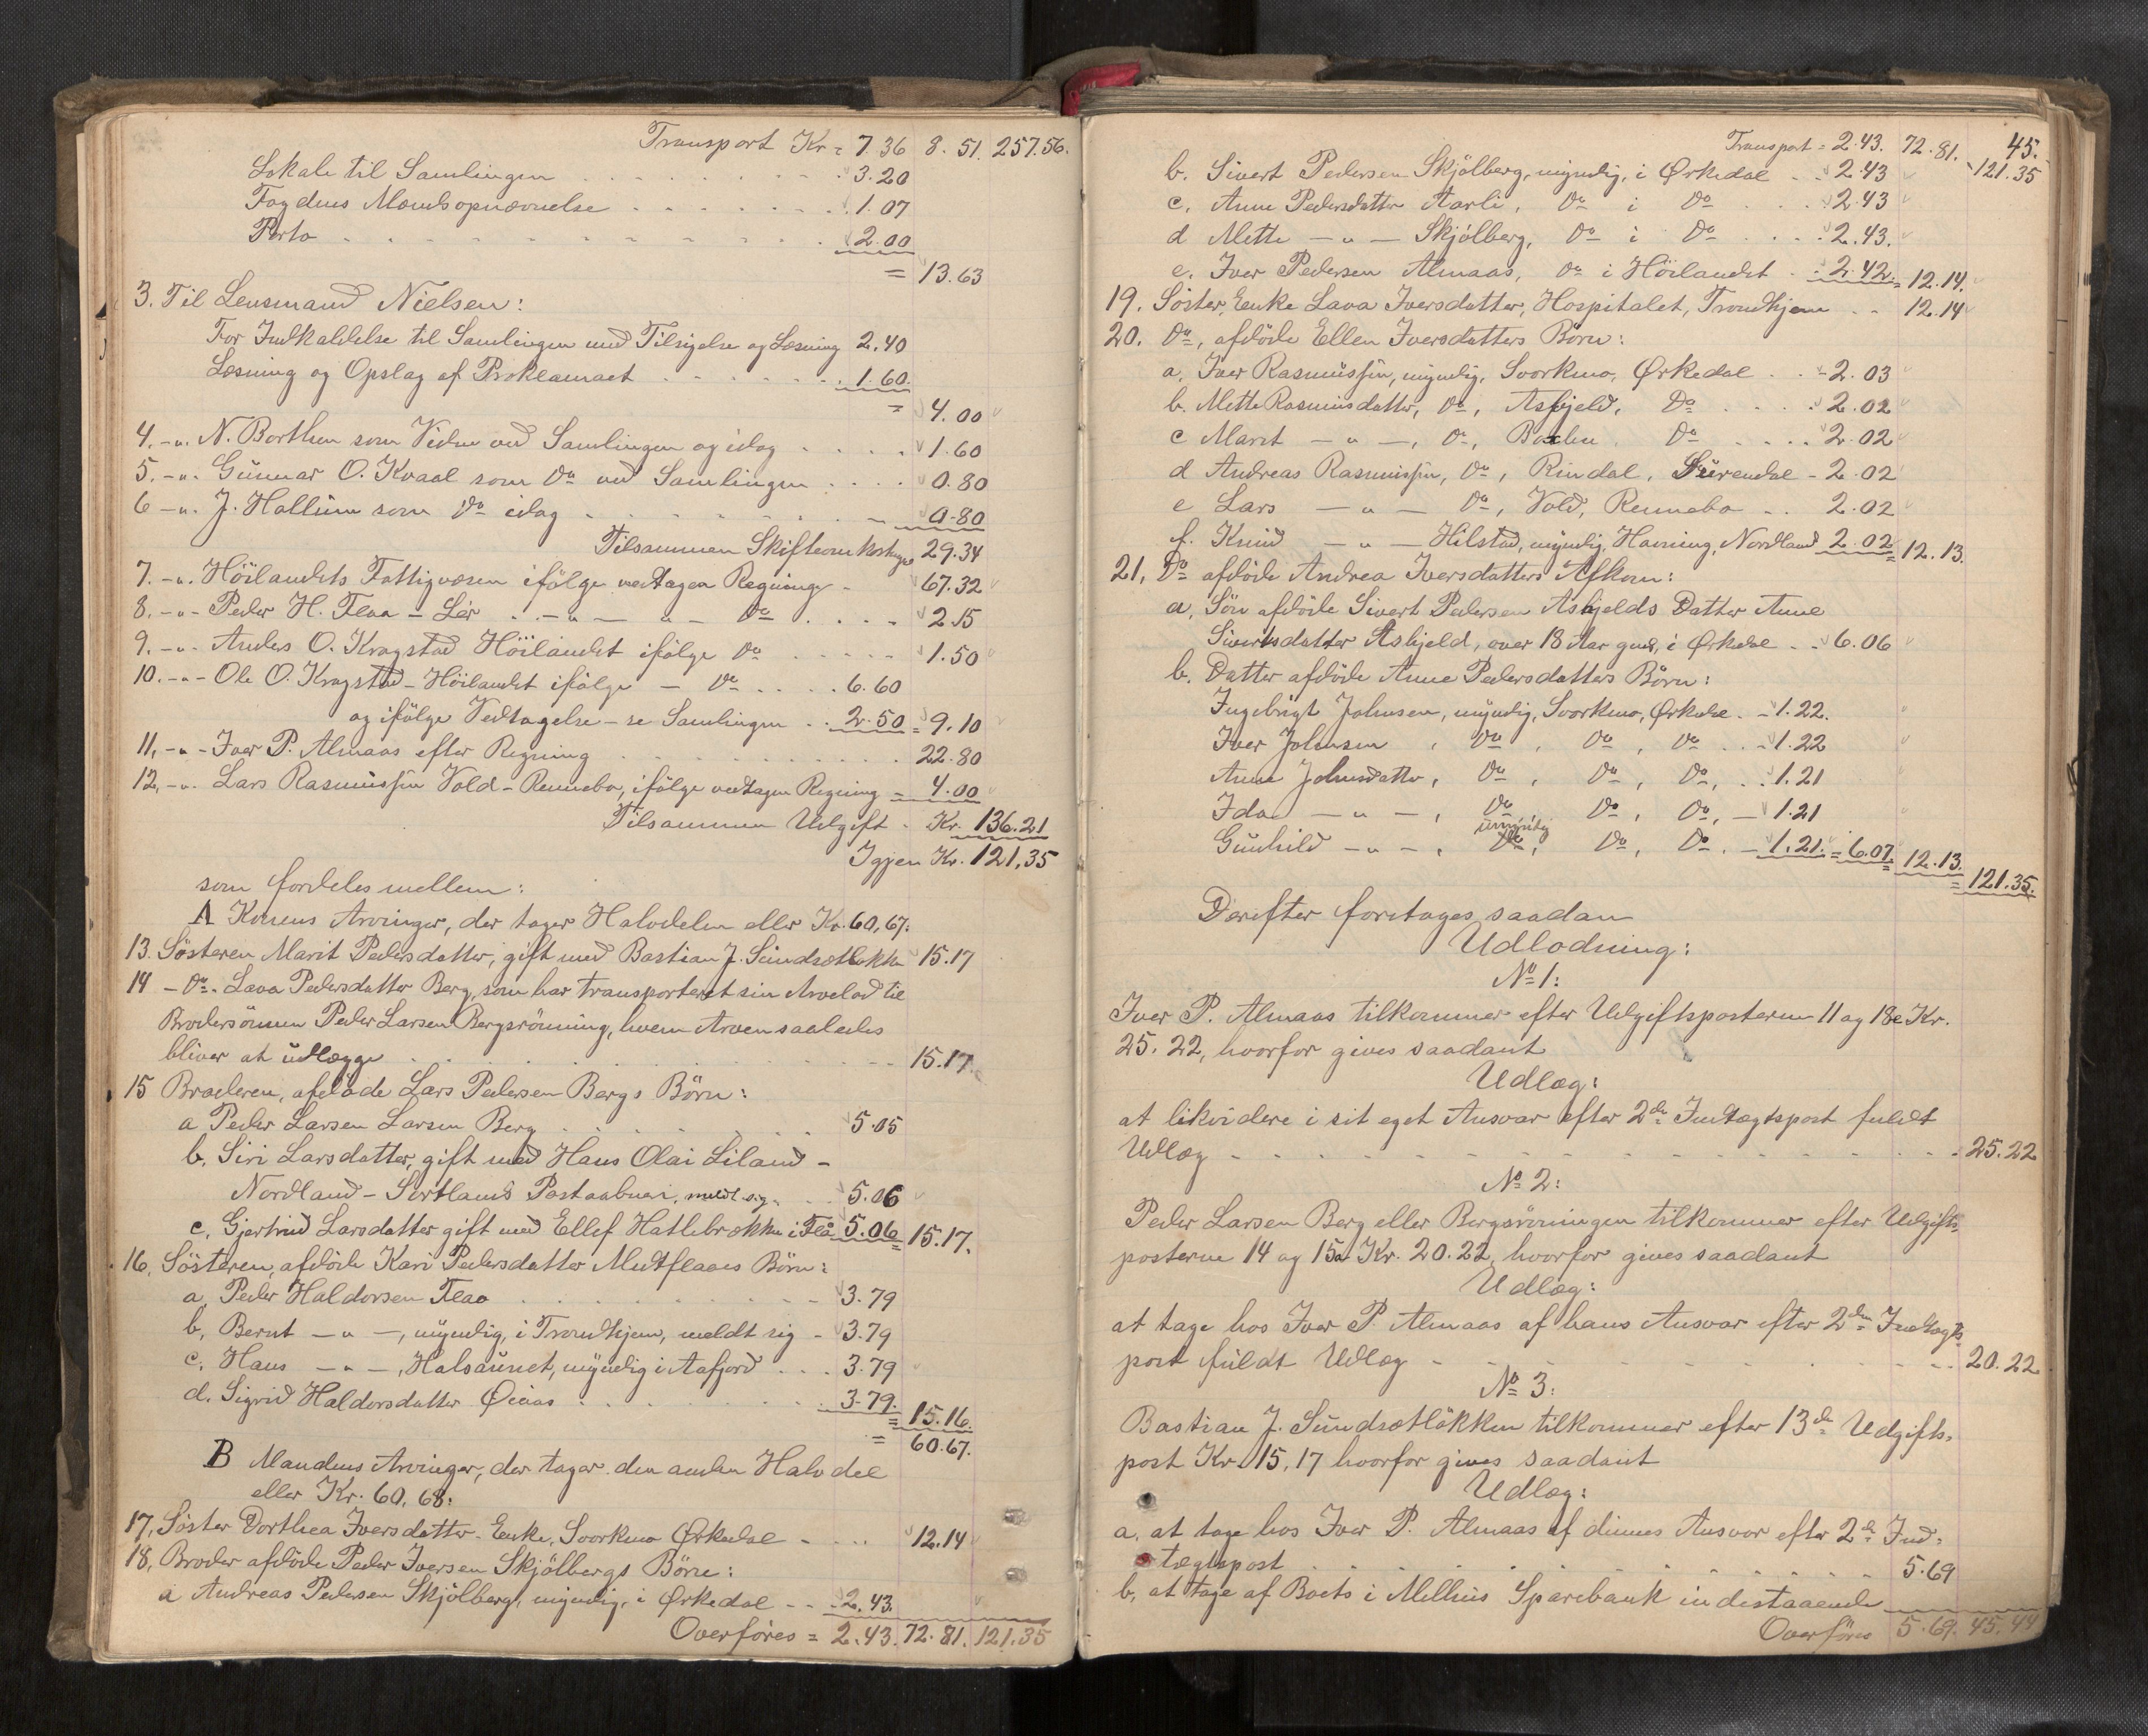 Transport Kr = 7.36 8.51. 257.56.
Lokale til Samlingen . . . 3.20
Fogdens Mændsopnævnelse . . . 1.07
Porto . . . 2.00
= 13.63
3. Til Lensmand Nielsen:
For Indkaldelse til Samlingen med Tilsigelse og Læsning 2.40
Læsning og Opslag af Proklamaet . . . 1.60.
= 4.00
4. -„- N. Borthen som Vidne ved Samlingen og idag . . . 1.60
5. -„- Gunnar O. Kvaal som Do ved Samlingen . . . 0.80
6 -„- J. Hallum som Do idag . . . 0.80
Tilsammen Skifteomkostninger 29.34
7. -„- Höilandets Fattigvæsen ifölge vedtagen Regning - 67.32
8. -„- Peder H. Flaa - Lér . . -„- -„- Do . . . 2.15
9. -„- Anders O. Kragstad Höilandet ifölge Do . . . 1.50
10. -„- Ole O. Kragstad - Höilandet ifölge - Do . . . 6.60
og ifölge Vedtagelse - se Samlingen . . 2.50 = 9.10
11, -„- Iver P. Almaas efter Regning . . . 22.80
12, -„- Lars Rasmussen Vold - Rennebo, ifölge vedtagen Regning = 4.00
Tilsammen Udgift - Kr. 136.21
Igjen Kr. 121,35
som fordeles mellem:
A Konens Arvinger, der tager Halvdelen eller Kr. 60,67:
13. Søsteren Marit Pedersdatter, gift med Bastian J. Sundsætløkken 15.17
14 - Do - Lava Pedersdatter Berg, som har transporteret sin Arvelod til
Brodersönnen Peder Larsen Bergsrönning, hvem Arven saaledes
bliver at udlægge . . . 15.17.
15 Broderen, afdöde Lars Pedersen Bergs Börn:
a Peder Larsen Larsen Berg . . . 5.05
b. Siri Larsdatter, gift med Hans Olai Liland -
Nordland - Sortlands Postaabneri, meldt sig. . . 5.06
c, Gjertrud Larsdatter gift med Ellef Hatlebrekken i Flå 5.06 = 15.17.
16, Søsteren, afdöde Kari Pedersdatter Midtflaaes Börn:
a, Peder Haldorsen Flaa . . . 3.79
b, Bernt -„-, myndig, i Trondhjem, meldt sig - 3.79
c, Hans -„-, Halsaunet, myndig i Aafjord . . . 3.79
d. Sigrid Haldorsdatter Øiaas . . . 3.79. = 15.16.
= 60.67.
B Mandens Arvinger, der tager den anden Halvdel
eller Kr. 60,68:
17, Søster Dorthea Iversdatter - Enke, Svorkmo Ørkedal . . . 12.14
18, Broder afdöde Peder Iversen Skjölbergs Börn:
a Andreas Pedersen Skjölberg, myndig, i Ørkedal - - 2.43.
Overföres = 2.43. 72.81. 121.35
45.
Transport = 2.43. 72.81. 121.35
b. Sivert Pedersen Skjölberg, myndig, i Ørkedal . . 2.43
c. Anne Pedersdatter Aarli, Do i Do . . . 2.43
d Mette -„- Skjölberg, Do i Do . . . 2.43.
e. Iver Pedersen Almaas, Do i Höilandet . . 2.42. = 12.14.
19. Söster, Enke Lava Iversdatter, Hospitalet, Trondhjem . . 12.14
20. Do, afdöde Ellen Iversdatters Börn:
a, Iver Rasmussen, myndig, Svorkmo, Ørkedal . . 2.03
b. Mette Rasmusdatter, Do, Asbjeld, Do . . . 2.02
c Marit -„-, Do, Do . . . 2.02
d Andreas Rasmussen, Do, Rindal, Surendal - 2.02
e Lars -„- Do, Vold, Rennebo . . 2.02
f. Knud -„- Hilstad, myndig, Nordland 2.02 = 12.13.
21, Do afdöde Andrea Iversdatters Afkom:
a, Sön afdöde Sivert Pedersen Asbjelds Datter Anne
Sivertsdatter Asbjeld, over 18 Aar gml, i Ørkedal . . 6.06
b. Datter afdöde Anne Pedersdatters Börn:
Ingebrigt Johnsen, myndig, Svorkmo, Ørkedal. - 1.22.
Iver Johnsen, Do, Do, Do . . - 1.22
Anne Johnsdatter, Do, Do, Do, . . 1.21
Ida -„-, Do Do, Do, - 1.21
umyndig
Gunhild -„-, Do, Do, Do. - 1.21. = 6.07. 12.13.
= 121.35.
Derefter foretages saadan
Udlodning:
No 1:
Iver P. Almaas tilkommer efter Udgiftsposterne 11 og 18e Kr.
25.22, hvorfor gives saadant
Udlæg:
at likvidere i sit eget Ansvar efter 2den Indtægtspost fuldt
Udlæg . . . 25.22
No 2:
Peder Larsen Berg eller Bergsröningen tilkommer efter Udgifts-
posterne 14 og 15a Kr. 20.22, hvorfor gives saadant
Udlæg:
at tage hos Iver P. Almaas af hans Ansvar efter 2den Indtægts-
post fuldt Udlæg . . . 20.22
No 3:
Bastian J. Sundsætlökken tilkommer efter 13de Udgifts-
post Kr. 15,17 hvorfor gives saadant
Udlæg:
a, at tage hos Iver P. Almaas af dennes Ansvar efter 2de Ind-
tægtspost . . . 5.69
b, at tage af Boets i Melhus Sparebank indestaaende
Overföres 5.69. 45.44